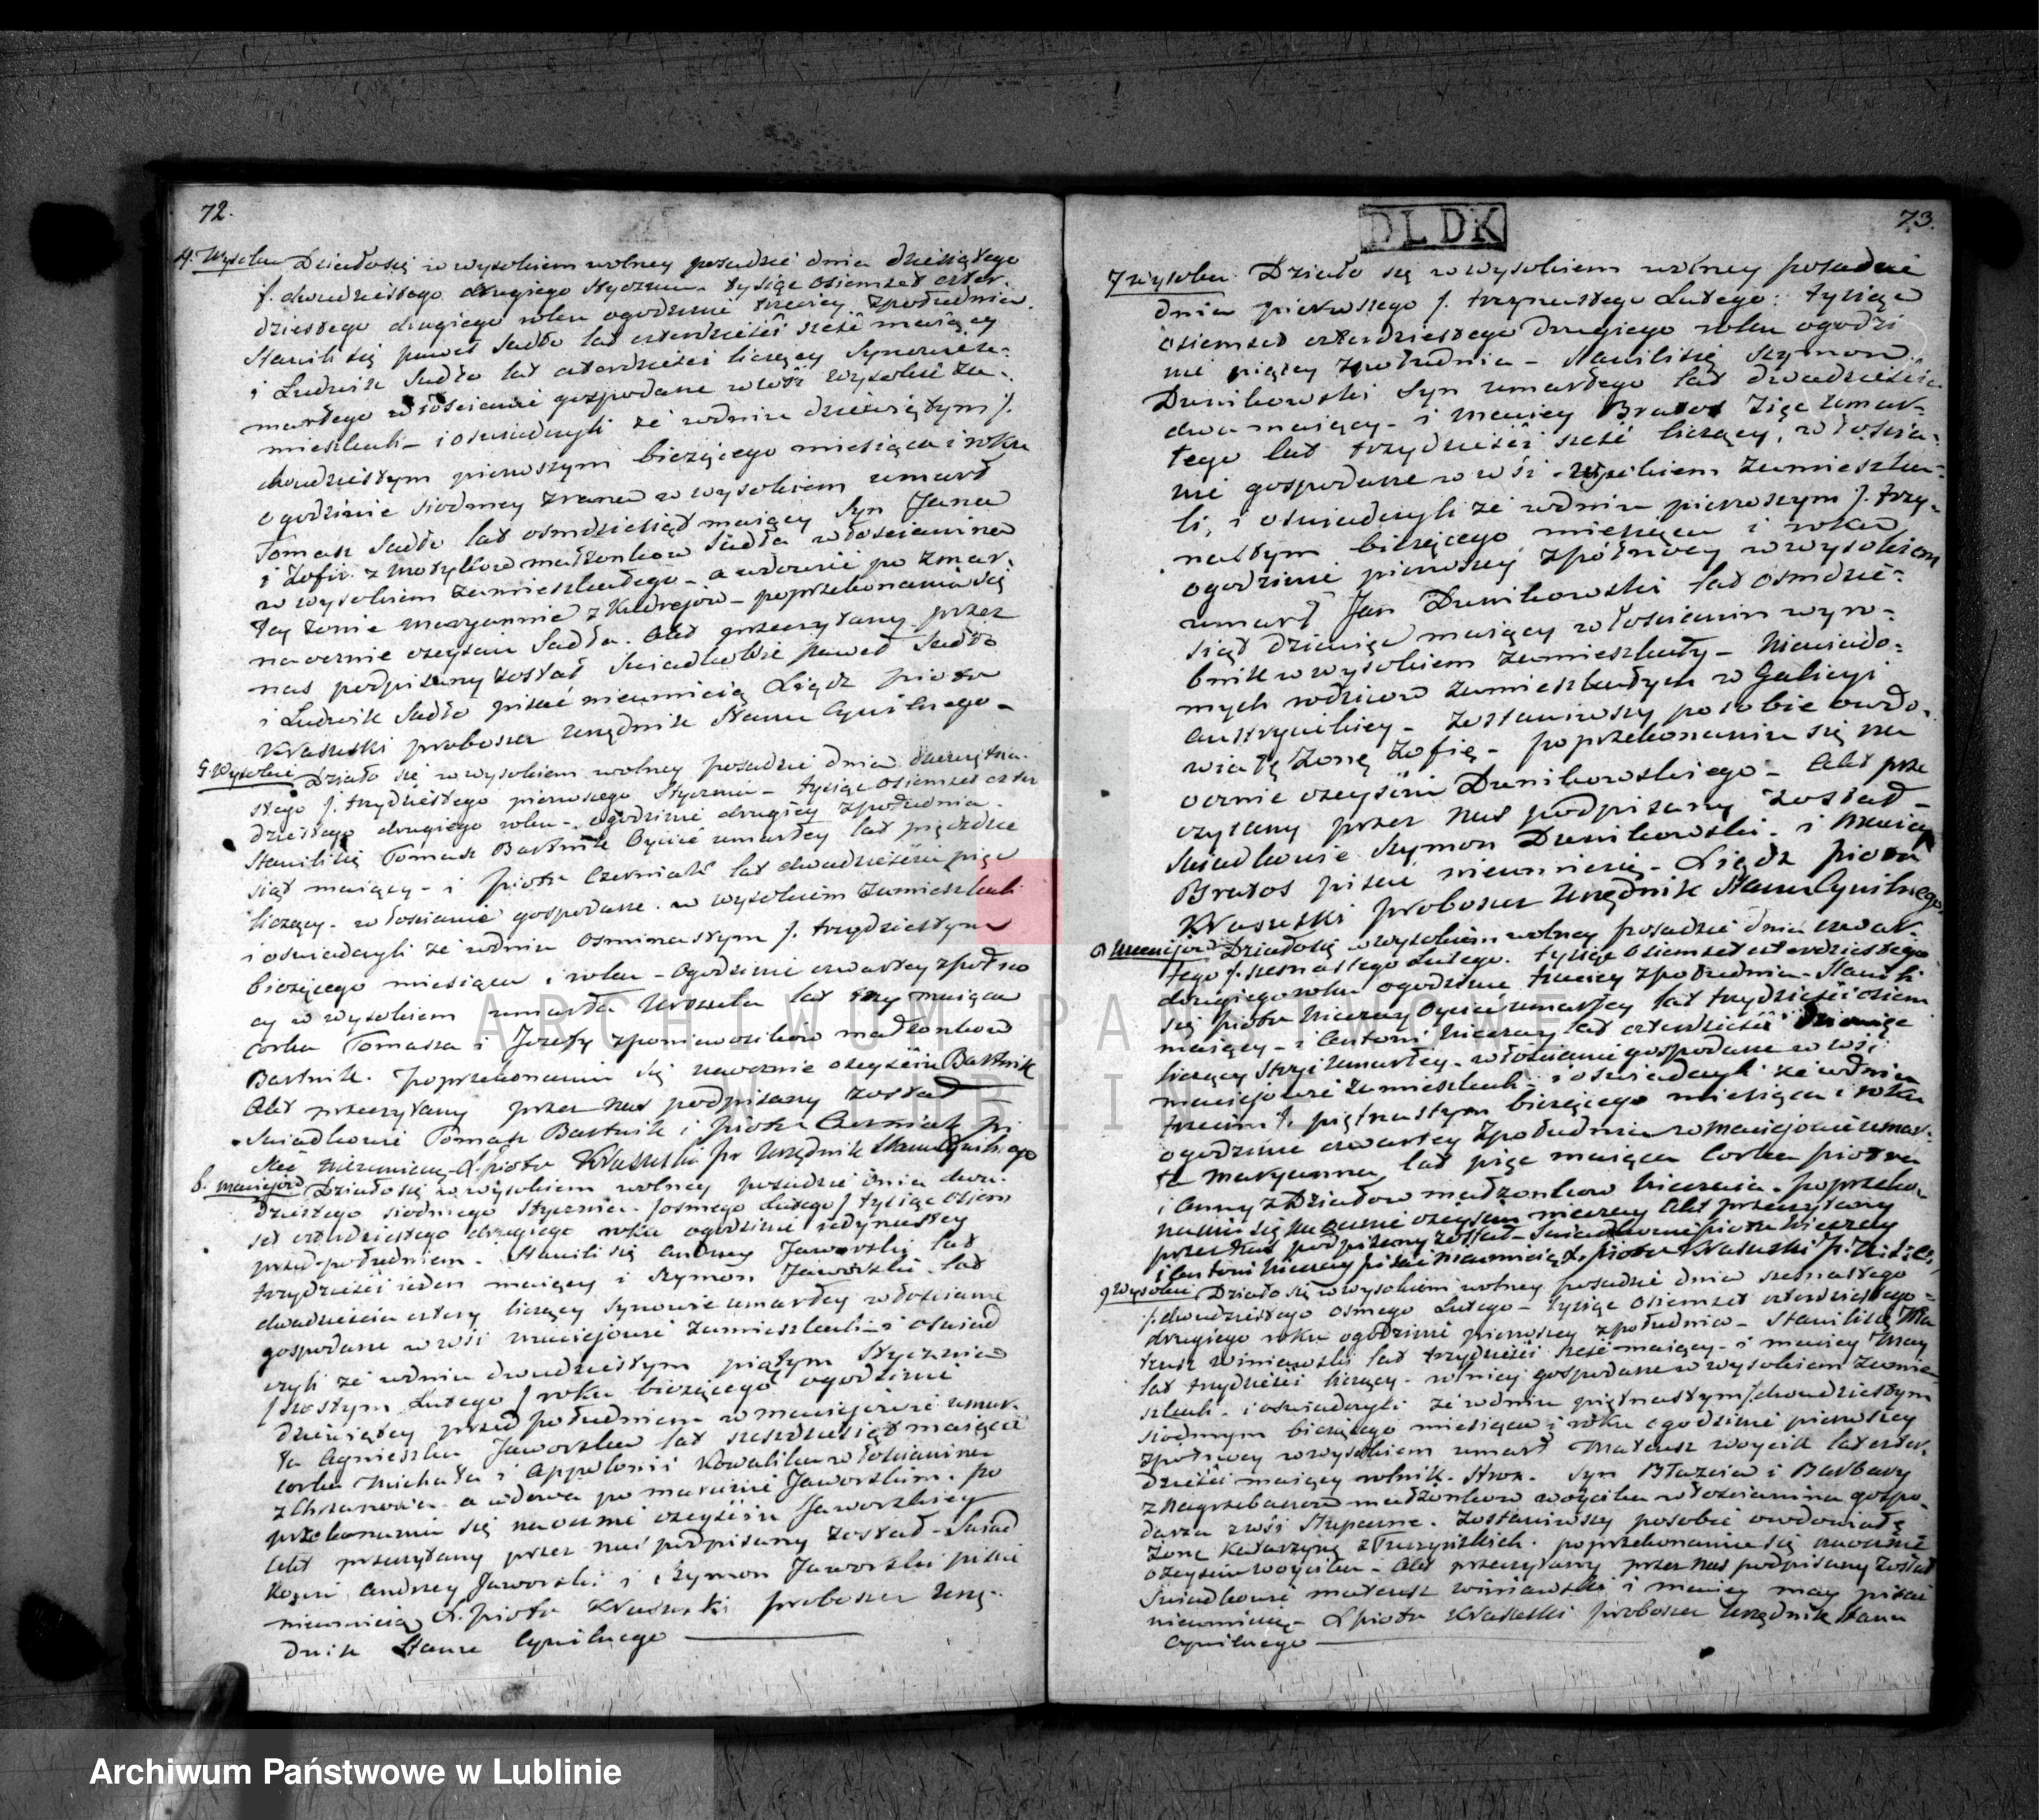 72.
4. Wysokie Działo się w wysokiem wolney posadzie dnia dziesiątego
/. dwudziestego drugiego Stycznia. tysiąc osiemset czter:
dziestego drugiego roku o godzinie trzeciey z południa.
Stawili się paweł Sadło lat czterdzieści sześć maiący
i Ludwik Sadło lat czterdzieści liczący Synowie u:
marłego włościanie gospodarze w wsi wysokie za:
mieszkali – i oświadczyli że w dniu dziewiątym /.
dwudziestym pierwszym bieżącego miesiąca i roku
o godzinie siodmey zrana w wysokiem umarł
Tomasz Sadło lat ośmdziesiąt maiący Syn Jana
i Zofii z Motyków małżonków Sadła włościanina
w wysokiem zamieszkałego – a wdowiec po zmar:
łey żonie maryannie z Kudrejów – po przekonaniu się
naocznie o zeyściu Sadła. Akt przeczytany przez
nas podpisany został Świadkowie paweł Sadło
i Ludwik Sadło pisać nieumieią Xiądz piotr
Kraszeski proboszcz urzędnik Stanu Cywilnego –
5. Wysokie Działo się w wysokiem wolney posadzie dnia dziewiętna:
stego /. trzydziestego pierwszego Stycznia – tysiąc osiemset czter
dziestego drugiego roku – o godzinie drugiey z południa.
Stawili się Tomasz Bartnik Oyciec umarłey lat pięćdzie
siąt maiący – i piotr Czerniak lat dwadzieścia pięć
liczący – włościanie gospodarze w wysokiem zamieszkali
i oświadczyli że w dniu ośmnastym /. trzydziestym
bieżącego miesiąca i roku – o godzinie czwartey z półno
cy w wysokiem umarła Urszula lat trzy maiąca
corka Tomasza i Jozefy z poniawozików małżonków
Bartnik. po przekonaniu się naocznie o zeyściu Bartnik
Akt przeczytany przez nas podpisany został
Świadkowie Tomasz Bartnik i piotr Czerniak pi
sać nieumieią X. piotr Kraszeski pr urzędnik Stanu Cywilnego
6. maciejów Działo się w wysokiem wolney posadzie dnia dwu:
dziestego siodmego Stycznia /osmego Lutego/ tysiąc osiem
set czterdziestego drugiego roku o godzinie iedynastey
przed południem. Stawili się andrzey Jaworski lat
trzydzieści ieden maiący i Szymon Jaworski lat
dwadzieścia cztery liczący synowie umarłey włościanie
gospodarze w wsi maciejowie zamieszkali – i oświad
czyli że w dniu dwudziestym piątym Stycznia
/szostym Lutego / roku bieżącego o godzinie
dziewiątey przed południem w maciejowie umar:
ła Agnieszka Jaworska lat sześćdziesiąt maiąca
corka michała i Appolonii Kowalika włościanina
z Chrzanowa a wdowa po marcinie Jaworskim. po
przekonaniu się naocznie o zeyściu Jaworskiey
Akt przeczytany przez nas podpisany został – Świad
kowie andrzey Jaworski i Szymon Jaworski pisać
nieumieią X. piotr Kraszeski proboszcz urzę:
dnik Stanu Cywilnego
DLDK
73.
7 wysokie Działo się w wysokiem wolney posadzie
dnia pierwszego /. trzynastego Lutego: tysiąc
osiemset czterdziestego drugiego roku o godzi
nie piątey z południa – Stawili się Szymon
Dunikowski syn umarłego lat dwadzieścia
dwa maiący – i maciey Bratos zięć umar:
łego lat trzydzieści sześć liczący, włościa:
nie gospodarze w wsi wysokiem zamieszka:
li, i oświadczyli że w dniu pierwszym /. trzy:
nastym bieżącego miesiąca i roku
o godzinie pierwszey z północy w wysokiem
umarł Jan Dunikowski lat ośmdzie:
siąt dziewięć maiący włościanin wyro:
bnik w wysokiem zamieszkały – niewiado:
mych rodziców zamieszkałych w Galicyi
austryackiey – zostawiwszy po sobie owdo:
wiałą żonę Zofię – po przekonaniu się na
ocznie o zeyściu Dunikowskiego – Akt prze
czytany przez nas podpisany został –
Świadkowie Szymon Dunikowski – i maciey
Bratos pisać nieumieią – Xiądz piotr
Kraszeski proboszcz urzędnik Stanu Cywilnego
8 maciejów Działo się w wysokiem wolney posadzie dnia czwar:
tego /. szesnastego Lutego. tysiąc osiemset czterdziestego
drugiego roku o godzinie trzeciey z południa – Stawili
się piotr Kiczery Oyciec umarłey lat trzydzieści osiem
maiący – i Antoni Kiczery lat czterdzieści dziewięć
liczący Stryi umarłey – włościanie gospodarze w wsi
maciejowie zamieszkali – i oświadczyli że w dniu
trzecim /. piętnastym bieżącego miesiąca i roku
o godzinie czwartey z południa w maciejowie umar:
ła maryanna lat pięć maiąca Corka piotra
i Anny z Działów małżonków – po przeko:
naniu się naocznie o zeyściu Kiczery Akt przeczytany
przez nas podpisany został – Świadkowie piotr Kiczery
i Antoni Kiczery pisać nieumieią X. piotr Kraszeski
9 Wysokie Działo się w wysokiem wolney posadzie dnia szesnastego
/. dwudziestego osmego Lutego – tysiąc osiemset czterdziestego
drugiego roku o godzinie pierwszey z południa – Stawili się Ma
teusz Winiawski lat trzydzieści sześć maiący – i maciey may
lat trzydzieści liczący – rolnicy gospodarze w wysokiem zamie
szkali – i oświadczyli że w dniu piętnastym /. dwudziestym
siodmym bieżącego miesiąca i roku o godzinie pierwszey
z północy w wysokiem umarł Mateusz woycik lat czter:
dzieści maiący rolnik. Syn Błażeia i Barbary
małżonków woycika włościanina gospo:
darza z wsi Stupczne. Zostawiwszy po sobie owdowiałę
żonę Katarzynę. po przekonaniu się naocznie
o zeyściu woycika – Akt przeczytany przez nas podpisany został
Świadkowie mateusz winiawski i maciey may pisać
nieumieią – X piotr Kraszeski proboszcz urzędnik Stanu
Cywilnego
ARCHIWUM PAŃSTWOWE
W LUBLINIE
Archiwum Państwowe w Lublinie